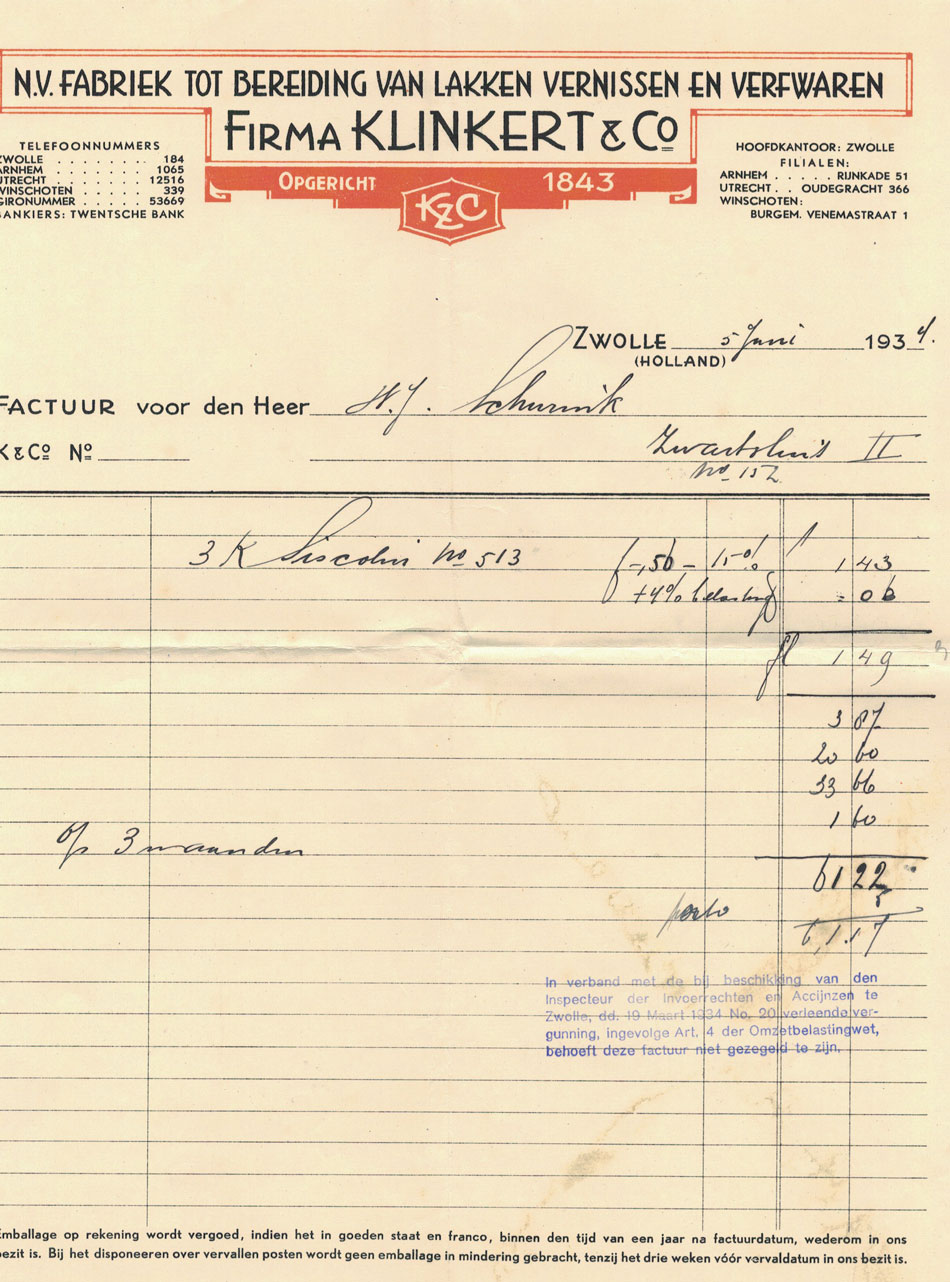 N.V. FABRIEK TOT BEREIDING VAN LAKKEN VERNISSEN EN VERFWAREN
FIRMA KLINKERT & Co
OPGERICHT 1843
K&C
TELEFOONNUMMERS
ZWOLLE . . . . . . . . 184
ARNHEM . . . . . . . 1065
UTRECHT . . . . . . 12516
WINSCHOTEN . . . . . 339
GIRONUMMER . . . . 53669
BANKIERS: TWENTSCHE BANK
HOOFDKANTOOR: ZWOLLE
FILIALEN:
ARNHEM . . . . . RIJNKADE 51
UTRECHT . . OUDEGRACHT 366
WINSCHOTEN:
BURGEM. VENEMASTRAAT 1
ZWOLLE 5 Juni 1934.
(HOLLAND)
FACTUUR voor den Heer H.J. Schurink
K & Co No
Zwartsluis II
No 152
3 K Siscolin No 513 f -,56 - 15% 1 43
+4% belasting - 06
fl 1 49
3 87
20 60
33 66
1 60
o/ 3 maanden
61 22
porto 5
61.17
In verband met de bij beschikking van den
Inspecteur der Invoerrechten en Accijnzen te
Zwolle, dd. 19 Maart 1934 No. 20 verleende ver-
gunning, ingevolge Art. 4 der Omzetbelastingwet,
behoeft deze factuur niet gezegeld te zijn.
Emballage op rekening wordt vergoed, indien het in goeden staat en franco, binnen den tijd van een jaar na factuurdatum, wederom in ons
bezit is. Bij het disponeeren over vervallen posten wordt geen emballage in mindering gebracht, tenzij het drie weken vóór vervaldatum in ons bezit is.